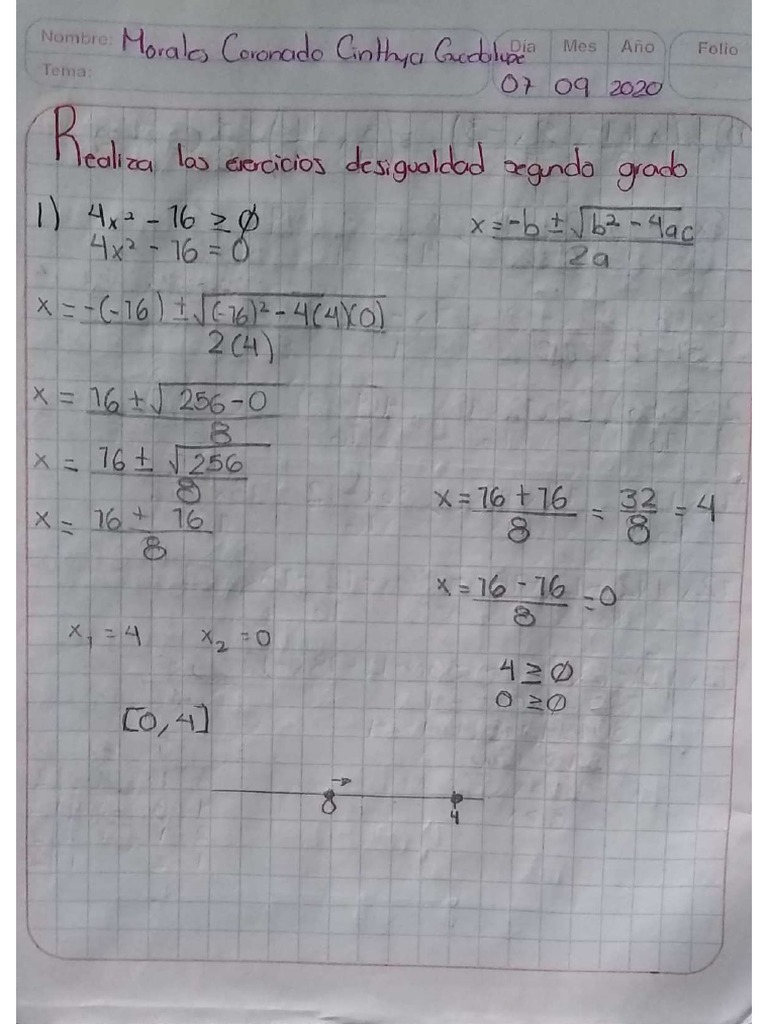 Nombre: Morales Coronado Cinthya Guadalupe
Día Mes Año Folio
Tema:
07 09 2020
Realiza los ejercicios desigualdad segundo grado
1) 4x² - 16 ≥ 0
4x² - 16 = 0
x = -b ± √b² - 4ac / 2a
x = -(-16) ± √(-16)² - 4(4)(0) / 2(4)
x = 16 ± √256 - 0 / 8
x = 16 ± √256 / 8
x = 16 + 16 / 8
x = 16 + 16 / 8 = 32 / 8 = 4
x = 16 - 16 / 8 = 0
x₁ = 4 x₂ = 0
4 ≥ 0
0 ≥ 0
[0, 4]
4